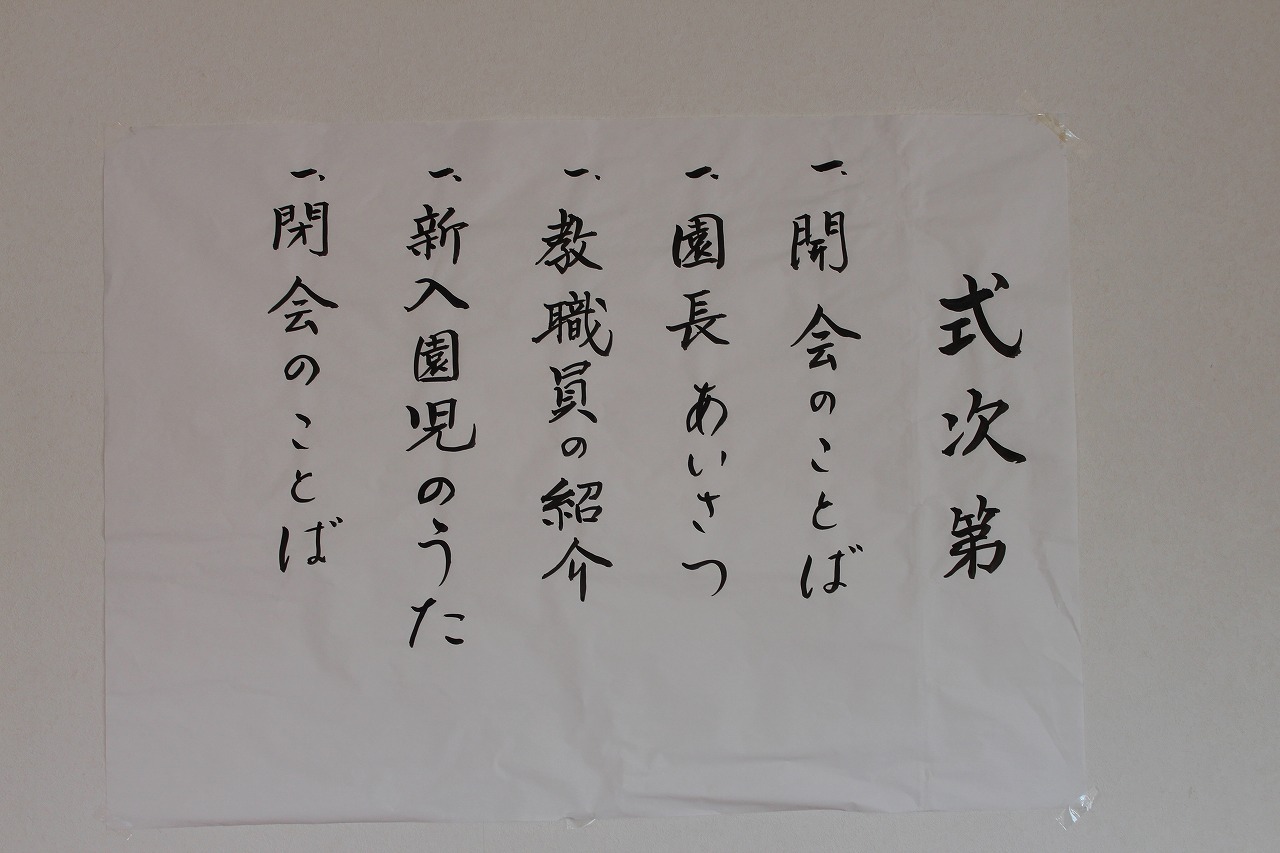 式次第
一、開会のことば
一、園長あいさつ
一、教職員の紹介
一、新入園児のうた
一、閉会のことば